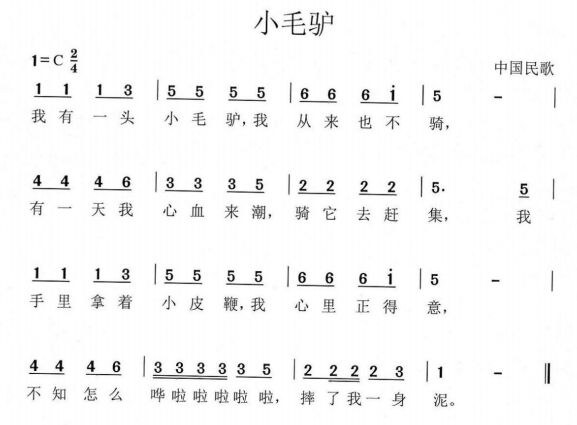 小毛驴
1=C 2/4
中国民歌
1 1 1 3 | 5 5 5 5 | 6 6 6 i | 5 - |
我有一头 小毛驴,我 从来也不 骑,
4 4 4 6 | 3 3 3 5 | 2 2 2 2 | 5. 5
有一天我 心血来潮,骑它去赶 集, 我
1 1 1 3 | 5 5 5 5 | 6 6 6 i | 5 - |
手里拿着 小皮鞭,我 心里正得 意,
4 4 4 6 | 3 3 3 3 3 5 | 2 2 2 2 3 | 1 - ‖
不知怎么 哗啦啦啦啦啦, 摔了我一身 泥。